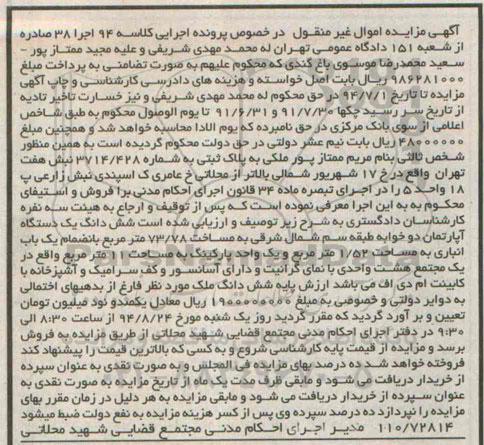 آگهی مزایده اموال غیر منقول در خصوص پرونده اجرایی کلاسه ۹۴ اجرا ۳۸ صادره
از شعبه ۱۵۱ دادگاه عمومی تهران له محمد مهدی شریفی و علیه مجید ممتاز پور -
سعید محمدرضا موسوی باغ گندی که محکوم علیهم به صورت تضامنی به پرداخت مبلغ
۹۸۶۲۸۱۰۰۰ ریال بابت اصل خواسته و هزینه های دادرسی کارشناسی و چاپ آگهی
مزایده تا تاریخ ۹۴/۷/۱ در حق محکوم له محمد مهدی شریفی و نیز خسارت تاخیر تادیه
از تاریخ سر رسید چکها ۹۱/۷/۳۰ و ۹۱/۶/۳۱ تا یوم الوصول محکوم به طبق شاخص
اعلامی از سوی بانک مرکزی در حق نامبرده که یوم الادا محاسبه خواهد شد و همچنین مبلغ
۴۸۰۰۰۰۰۰ ریال بابت نیم عشر دولتی در حق دولت محکوم گردیده است به همین منظور
شخص ثالثی بنام مریم ممتاز پور ملکی به پلاک ثبتی به شماره ۳۷۱۴/۴۲۸ نبش هفت
تهران واقع در خ ۱۷ شهریور شمالی بالاتر از محلاتی خ عامری ک اسپندی نبش زارعی پ
۱۸ واحد ۵ را در اجرای تبصره ماده ۳۴ قانون اجرای احکام مدنی برا فروش و استیفای
محکوم به به این اجرا معرفی نموده است که پس از توقیف و ارجاع به هیئت سه نفره
کارشناسان دادگستری به شرح زیر توصیف و ارزیابی شده است شش دانگ یک دستگاه
آپارتمان دو خوابه طبقه سه شمال شرقی به مساحت ۷۳/۷۸ متر مربع بانضمام یک باب
انباری به مساحت ۱/۵۲ متر مربع و یک واحد پارکینگ به مساحت ۱۰ متر مربع واقع در
یک مجتمع هشت واحدی با نمای گرانیت و دارای آسانسور و کف سرامیک و آشپزخانه با
کابینت ام دی اف می باشد ارزش پایه شش دانگ ملک مورد نظر فارغ از بدهیهای احتمالی
به دوایر دولتی و خصوصی به مبلغ ۱۹۰۰۰۰۰۰۰۰ ریال معادل یکصدو نود میلیون تومان
تعیین و بر آورد گردید که مقرر گردید روز یک شنبه مورخ ۹۴/۸/۲۴ از ساعت ۸:۳۰ الی
۹:۳۰ در دفتر اجرای احکام مدنی مجتمع قضایی شهید محلاتی از طریق مزایده به فروش
برسد و مزایده از قیمت پایه کارشناسی شروع و به کسی که بالاترین قیمت را پیشنهاد کند
فروخته خواهد شد.ده درصد بهای مزایده فی المجلس و به صورت نقدی به عنوان سپرده
از خریدار دریافت می شود و مابقی ظرف مدت یک ماه از تاریخ مزایده به صورت نقدی به
عنوان سپرده از خریدار دریافت می شود و مابقی مزایده به هر دلیل در زمان مقرر بهای
مزایده را نپردازد ده درصد سپرده وی پس از کسر هزینه مزایده به نفع دولت ضبط میشود
۱۱۰/۷۲۸۱۴ مدیر اجرای احکام مدنی مجتمع قضایی شهید محلاتی